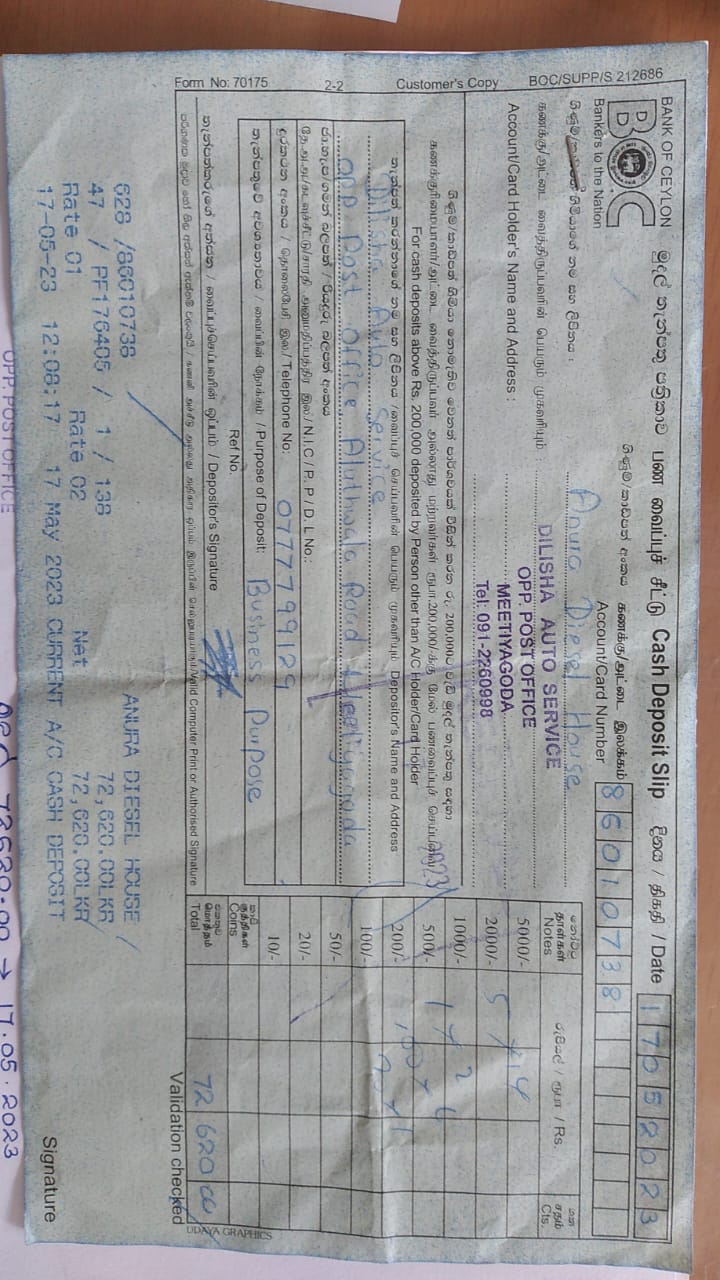 BANK OF CEYLON
BOC
Bankers to the Nation
මුදල් තැන්පතු පත්‍රිකාව பண வைப்புச் சீட்டு Cash Deposit Slip
දිනය / திகதி / Date 17052023
ගිණුම්/කාඩ්පත් අංකය கணக்கு/அட்டை இலக்கம்
Account/Card Number 86010738
ගිණුම්/කාඩ්පත් හිමියාගේ නම සහ ලිපිනය :
Anura Diesel House
கணக்கு/அட்டை வைத்திருப்பவரின் பெயரும் முகவரியும் :
Account/Card Holder's Name and Address :
DILISHA AUTO SERVICE
OPP. POST OFFICE
MEETIYAGODA
Tel: 091-2260998
For cash deposits above Rs. 200,000 deposited by Person other than A/C Holder/Card Holder
තැන්පත් කරන්නාගේ නම සහ ලිපිනය /வைப்புச் செய்பவரின் பெயரும் முகவரியும் Depositor's Name and Address
Dilisha Auto Service
OPP Post office, Aluthwala Road Meetiyagoda
N.I.C / P. P / D. L No.:
දුරකථන අංකය / தொலைபேசி இல/ Telephone No: 0777799129
තැන්පතුවේ අවශ්‍යතාවය / வைப்பின் நோக்கம் / Purpose of Deposit: Business Purpose
Ref No.
තැන්පත්කරුගේ අත්සන / வைப்புச்செய்பவரின் ஒப்பம் / Depositor's Signature
/Valid Computer Print or Authorised Signature
නෝට්ටු
தாள்கள்
Notes
රුපියල් / ரூபா / Rs.
ශත
சதம்
Cts.
5000/- 5 x 14
2000/-
1000/- 1 x 2
500/-
200/-
100/- 100 x 6
50/-
20/- 20 x 1
10/-
කාසි
குற்றிகள்
Coins
එකතුව
மொத்தம்
Total 72 620 00
Validation checked
UDAYA GRAPHICS
Form No: 70175 2-2 Customer's Copy BOC/SUPP/S 212686
628 /86010738 ANURA DIESEL HOUSE /
47 / PF176405 / 1 / 138 72,620.00LKR
Rate 01 Rate 02 Net 72,620.00LKR
17-05-23 12:08:17 17 May 2023 CURRENT A/C CASH DEPOSIT
Signature
OPP. POST OFFICE
72620.00 → 17.05.2023